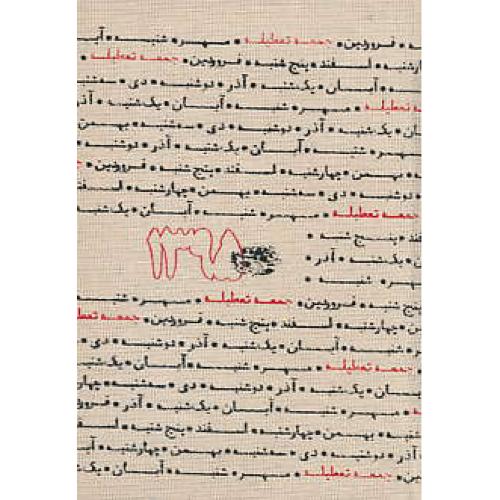 فروردین • جمعه تعطیله • مهر • شنبه •
اسفند • پنج شنبه • فروردین • جمعه تعطیله •
• آبان • یک‌شنبه • آذر • دوشنبه • دی • سه‌شنبه
تعطیله • مهر • شنبه • آبان • یک‌شنبه • آذر
یک‌شنبه • آذر • دوشنبه • دی • سه‌شنبه • بهمن
مهر • شنبه • آبان • یک‌شنبه • آذر • دوشنبه
• بهمن • چهارشنبه • اسفند • پنج شنبه • فروردین •
• دوشنبه • دی • سه‌شنبه • بهمن • چهارشنبه •
جمعه تعطیله • مهر • شنبه • آبان • یک‌شنبه
• پنج شنبه •
• یک‌شنبه • آذر •
مهر • شنبه •
پنج شنبه • فروردین • جمعه تعطیله • مهر • شنبه
• چهارشنبه • اسفند • پنج شنبه • فروردین •
• شنبه • آبان • یک‌شنبه • آذر • دوشنبه •
جمعه تعطیله • مهر • شنبه • آبان • یک‌شنبه
• یک‌شنبه • آذر • دوشنبه • دی • سه‌شنبه •
• مهر • شنبه • آبان • یک‌شنبه • آذر •
• بهمن • چهارشنبه • اسفند • پنج شنبه •
آذر • دوشنبه • دی • سه‌شنبه • بهمن • چهارشنبه •
• جمعه تعطیله • مهر • شنبه • آبان •